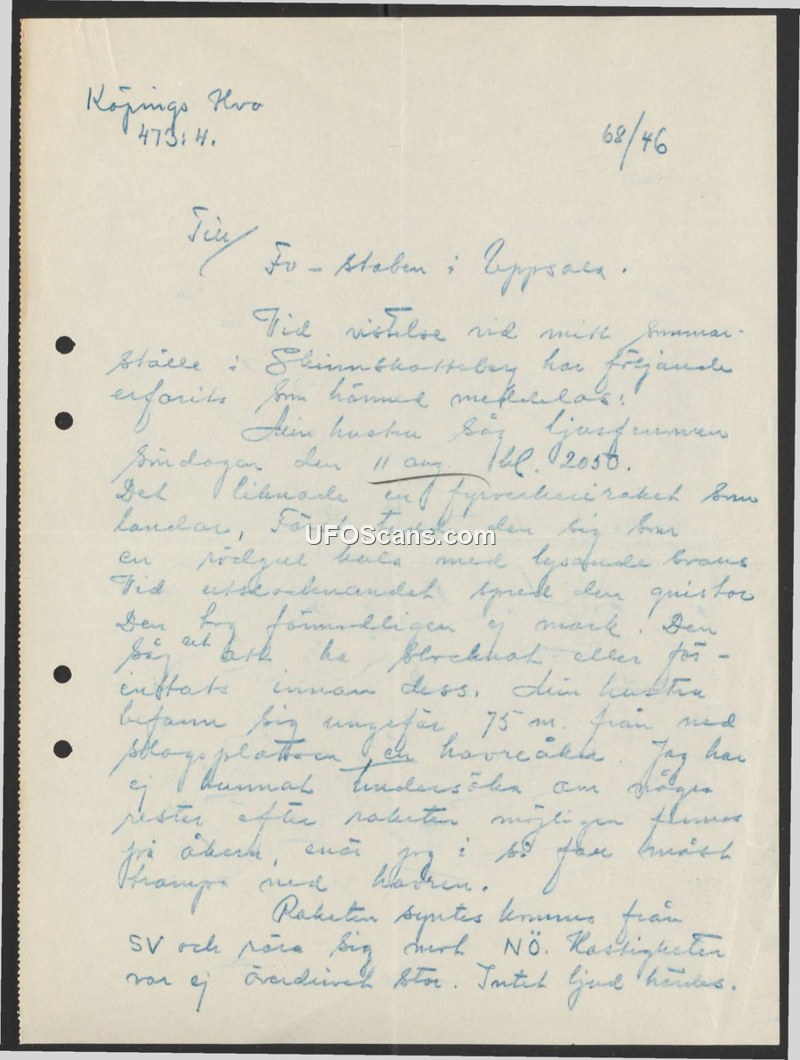 Köpings Hvo
473:4.
68/46
Till/
Fo-staben i Uppsala.
Vid vistelse vid mitt sommar-
ställe i Skinnskatteberg har följande
erfarits som härmed meddelas:
Min hustru såg ljusfenomen
söndagen den 11 aug. kl. 2050.
Det liknade en fyrverkeriraket som
landar, den sig som
en rödgul kula med lysande svans
Vid utslocknandet spred den gnistor
Den tog förmodligen ej mark. Den
såg ut att ha slocknat eller för-
intats innan dess. Min hustru
befann sig ungefär 75 m. från ned
slagsplatsen, en havreåker. Jag har
ej kunnat undersöka om några
rester efter raketen möjligen finnas
på åkern, enär jag i så fall måst
trampa ned havren.
Raketen syntes komma från
SV och röra sig mot NÖ. Hastigheten
var ej överdrivet stor. Intet ljud hördes.
UFOScans.com